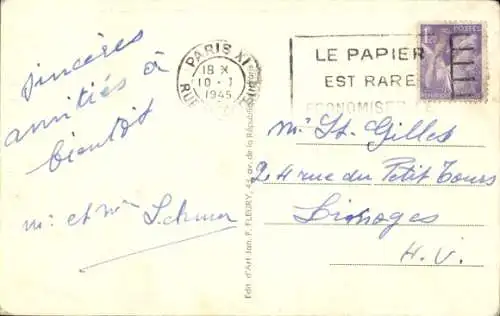 sincères
amitiés à
bientôt
m. et me
PARIS XI
18 H
10 - 1
1945
RUE
LE PAPIER
EST RARE
ECONOMISEZ LE
POSTES
Edit. d'Art Jan. F. FLEURY, 43 av. de la République
Mr St. Gilles
24 rue du Petit Tours
Limoges
H. V.